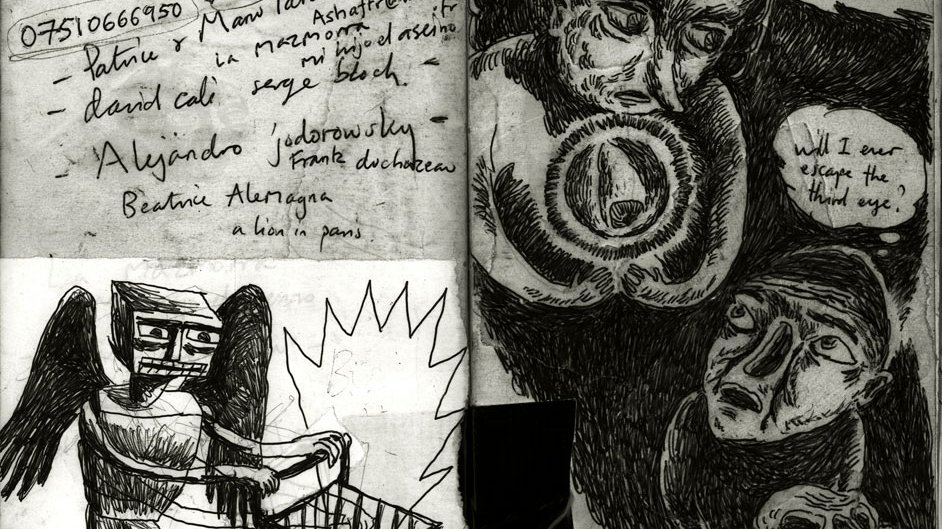 07510666950
- Patrice & Manu
Ashaftre
la mazmorra
mi hijo el asesino
- david cali serge bloch. -
- Alejandro jodorowsky -
Frank duchazeau
Beatrice Alemagna
a lion in paris.
Will I ever
escape the
third eye?